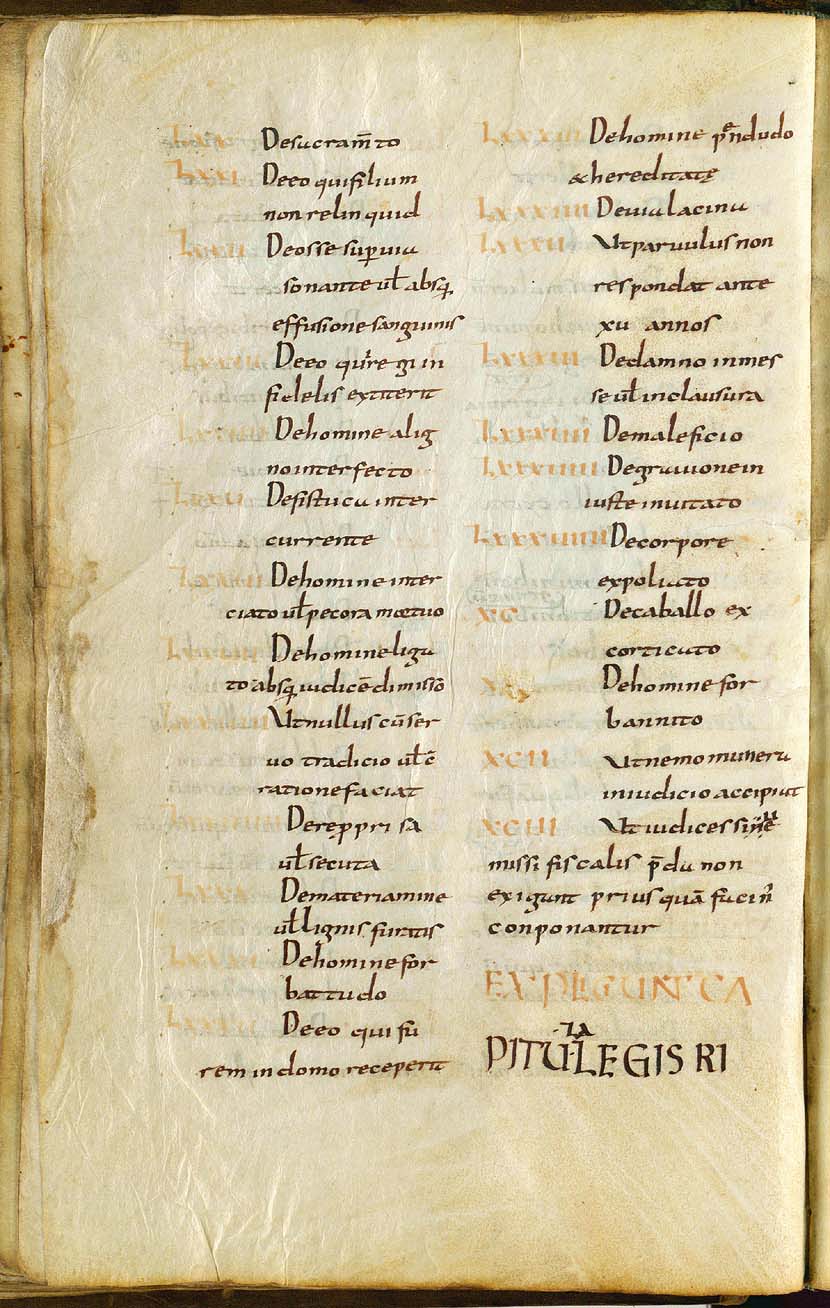 Desacram̄to
LXXI Deeo quifilium
non relin quid
Deosse sup uia
sonante ul̄ absq;
effusione sanguinis
Deeo qui re gi in
fidelis extiterit
Dehomine aliq
no interfecto
Defistuca inter
currente
Dehomine inter
ciato ul̄ pecora mortuo
Dehomine liga
to absq; iudicē dimisso
Ut nullus cū ser
uo tradicio ul̄ c̄
ratione faciat
De re p pri sa
ul̄ secuta
Demateriamine
ul̄ lignis furatis
Dehomine for
battudo
Deeo qui fu
rem in domo receperit
LXXXIII Dehomine pendudo
& hereditatę
LXXXIIII Deuia lacina
LXXXU Ut paruulus non
respondat ante
xu annos
LXXXUI Dedamno in mes
se ul̄ in clausura
LXXXUII Demaleficio
LXXXUIII Degrauione in
iuste inuitato
LXXXUIIII Decorpore
expoliato
XC Decaballo ex
corticato
XCI Dehomine for
bannito
XCII Ut nemo munera
in iudicio accipiat
XCIII Ut iudices
missi fiscalis p̄da non
exigant prius quā facin̄
conponantur
EXPLIGUNT CA
PITULA LEGIS RI